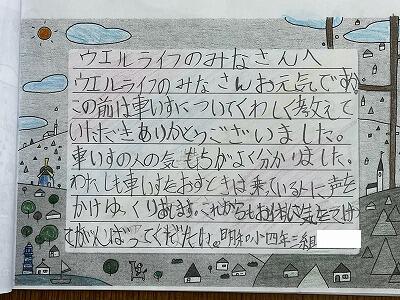 ウエルライフのみなさんへ
ウエルライフのみなさんお元気ですか。
この前は車いすについてくわしく教えて
いただきありがとうございました。
車いすの人の気もちがよく分かりました。
わたしも車いすをおすときは乗ている人に声を
かけゆくりおします。これからもお体に気をつけ
てがんばってください。明和小四年三組